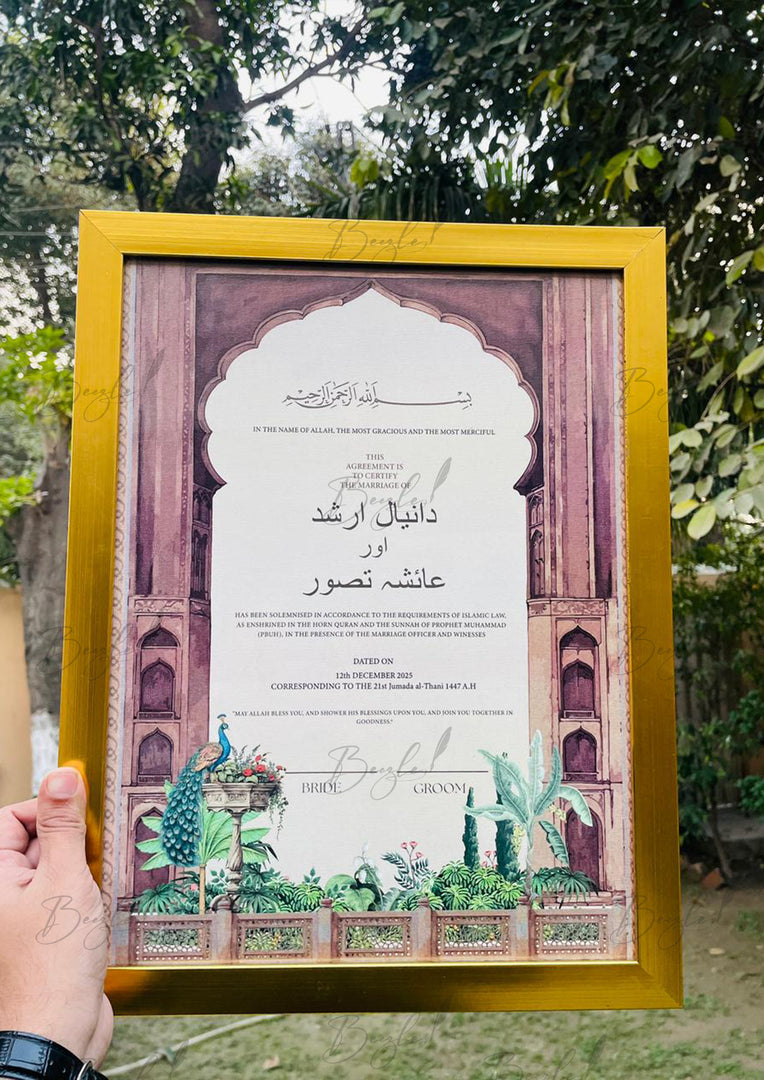 بِسْمِ اللهِ الرَّحْمٰنِ الرَّحِيْمِ
IN THE NAME OF ALLAH, THE MOST GRACIOUS AND THE MOST MERCIFUL
THIS
AGREEMENT IS
TO CERTIFY
THE MARRIAGE OF
دانیال ارشد
اور
عائشہ تصور
HAS BEEN SOLEMNISED IN ACCORDANCE TO THE REQUIREMENTS OF ISLAMIC LAW,
AS ENSHRINED IN THE HORN QURAN AND THE SUNNAH OF PROPHET MUHAMMAD
(PBUH), IN THE PRESENCE OF THE MARRIAGE OFFICER AND WINESSES
DATED ON
12th DECEMBER 2025
CORRESPONDING TO THE 21st Jumada al-Thani 1447 A.H
"MAY ALLAH BLESS YOU, AND SHOWER HIS BLESSINGS UPON YOU, AND JOIN YOU TOGETHER IN
GOODNESS."
BRIDE GROOM
Beezle
Beezle
Beezle
Beezle
Beezle
Beezle
Beezle
Beezle
Beezle
Beezle